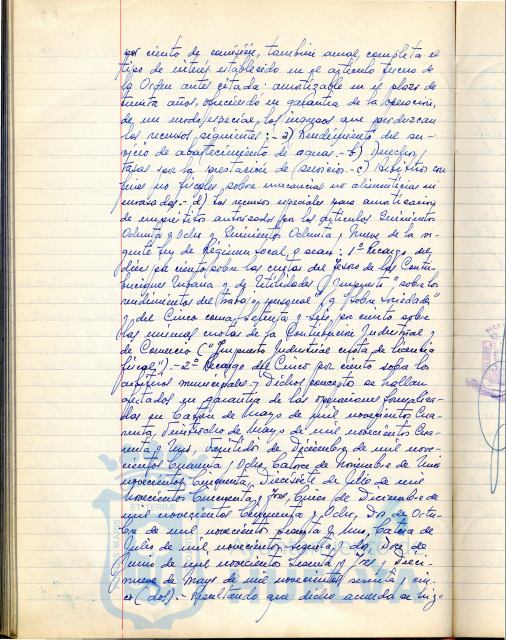 por ciento de comisión, también anual, completa el
tipo de interés establecido en el artículo tercero de
la Orden antes citada: amortizable en el plazo de
treinta años, ofreciendo en garantía de la operación,
de un modo especial, los ingresos que produzcan
los recursos siguientes:- a) Rendimiento del ser-
vicio de abastecimiento de aguas.- b) Derechos y
tasas por la prestación de servicios.- c) Arbitrios con
fines no fiscales sobre mercancías no alimenticias ni
envasadas.- d) Los recursos especiales para amortización
de empréstitos autorizados por los artículos Quinientos
Ochenta y Ocho y Quinientos Ochenta y Nueve de la vi-
gente Ley de Régimen Local, y sean: 1º Recargo del
diez por ciento sobre las cuotas del Tesoro de las Contri-
buciones Urbana y de Utilidades (Impuesto "sobre los
rendimientos del trabajo personal" y "sobre sociedades"
y del Cinco coma setenta y seis por ciento sobre
las mismas cuotas de la Contribución Industrial y
de Comercio ("Impuesto Industrial cuota de licencia
fiscal").- 2º Recargo del Cinco por ciento sobre los
arbitrios municipales.- Dichos conceptos se hallan
afectados en garantía de las operaciones formaliza-
das en Catorce de Mayo de mil novecientos Cua-
renta, Veintiocho de Mayo de mil novecientos Cua-
renta y Uno, Veintidós de Diciembre de mil nove-
cientos Cuarenta y Ocho, Catorce de Noviembre de
novecientos Cincuenta, Diecisiete de Julio de mil
novecientos Cincuenta y Tres, Cinco de Diciembre de
mil novecientos Cincuenta y Ocho, Dos de Octu-
bre de mil novecientos sesenta y uno, Catorce de
Julio de mil novecientos sesenta y dos, Doce de
Junio de mil novecientos Sesenta y Tres y Dieci-
nueve de Mayo de mil novecientos sesenta y cin-
co (dos).- Resultando que dicho acuerdo se hizo
HUELVA